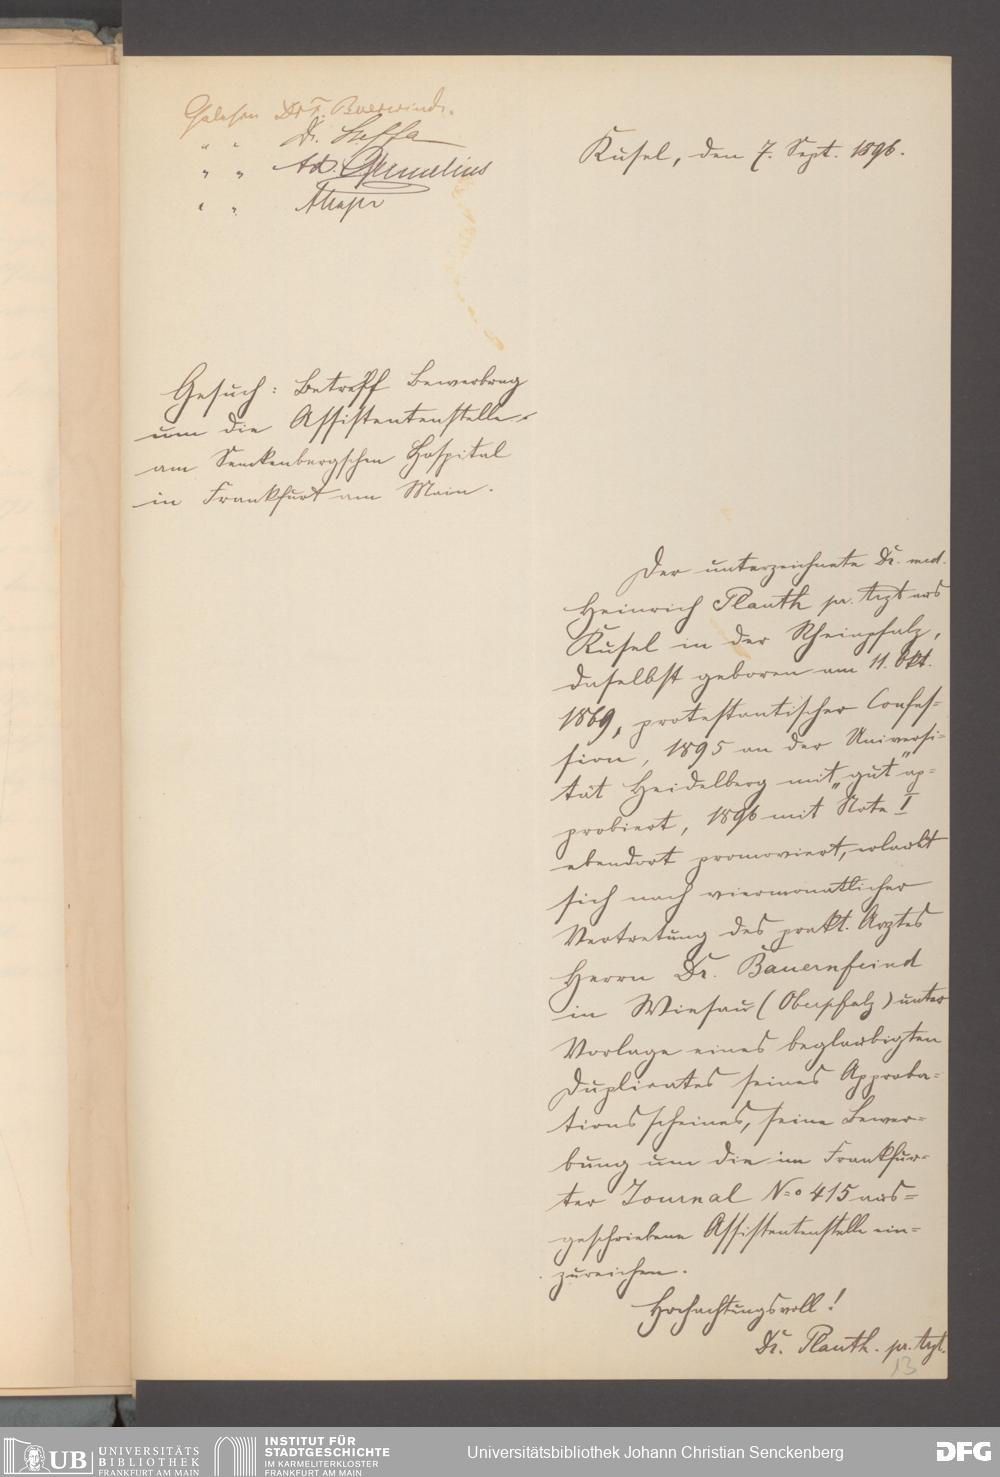 Gelesen Dr F. Baerwindt.
" " Dr. Steffa
" " Ad. Cornelius
" "
Kusel, den 7. Sept. 1896.
Gesuch: Betreff Bewerbung
um die Assistentenstelle
am Senckenbergschen Hospital
in Frankfurt am Main.
Der unterzeichnete Dr. med.
Heinrich Planth pr. Arzt aus
Kusel in der Rheinpfalz,
daselbst geboren am 11. Okt.
1869, protestantischer Confes-
sion, 1895 an der Universi-
tät Heidelberg mit „gut" ap-
probiert, 1896 mit Note I
ebendort promoviert, erlaubt
sich nach viermonatlicher
Vertretung des prakt. Arztes
Herrn Dr. Bauernfeind
in Wiesau (Oberpfalz) unter
Vorlage eines beglaubigten
Duplicates seines Approba-
tionsscheines, seine Bewer-
bung um die im Frankfur-
ter Journal No 415 aus-
geschriebene Assistentenstelle ein-
zureichen.
Hochachtungsvoll!
Dr. Planth. pr. Arzt.
13
UB UNIVERSITÄTS
BIBLIOTHEK
FRANKFURT AM MAIN
INSTITUT FÜR
STADTGESCHICHTE
IM KARMELITERKLOSTER
FRANKFURT AM MAIN
Universitätsbibliothek Johann Christian Senckenberg
DFG